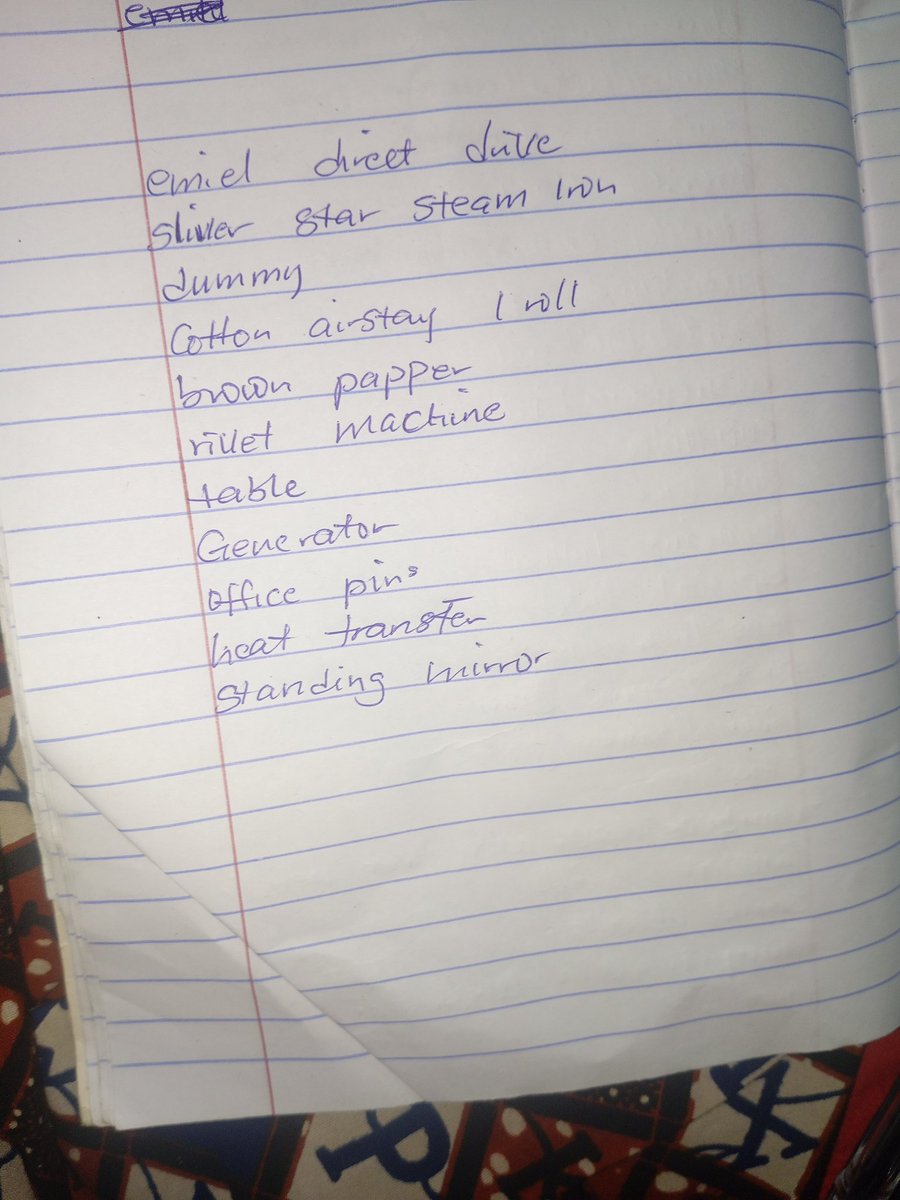 emiel direct drive
sliver star steam Iron
dummy
Cotton airstay 1 roll
brown papper
rivet machine
table
Generator
office pins
heat transfer
standing mirror